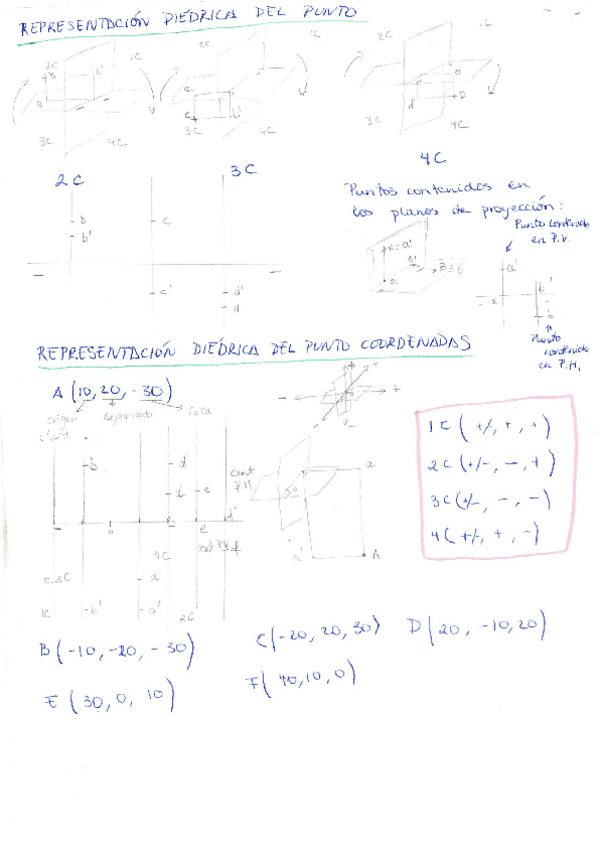 REPRESENTACIÓN DIÉDRICA DEL PUNTO
2C 1C 2C 1C 2C 1C
B b'
a
3C 4C 3C 4C 3C 4C
a
d' D
4C
2C 3C
b c
b'
c' d'
d
Puntos contenidos en
los planos de proyección:
Punto contenido
en P.V.
A≡a'
B≡b
a' b'
a b
Punto
contenido
en P.H.
REPRESENTACIÓN DIÉDRICA DEL PUNTO COORDENADAS
A (10, 20, -30)
origen Alejamiento Cota
b d
d' e
cont
P.H.
o e f'
P.V. f
4C
c 3C a
1C b' a' 2C
a
a' A
1C ( +/-, +, +)
2C (+/-, -, +)
3C (+/-, -, -)
4C (+/-, +, -)
B (-10, -20, -30)
C (-20, 20, 30)
D (20, -10, 20)
E (30, 0, 10)
F (40, 10, 0)